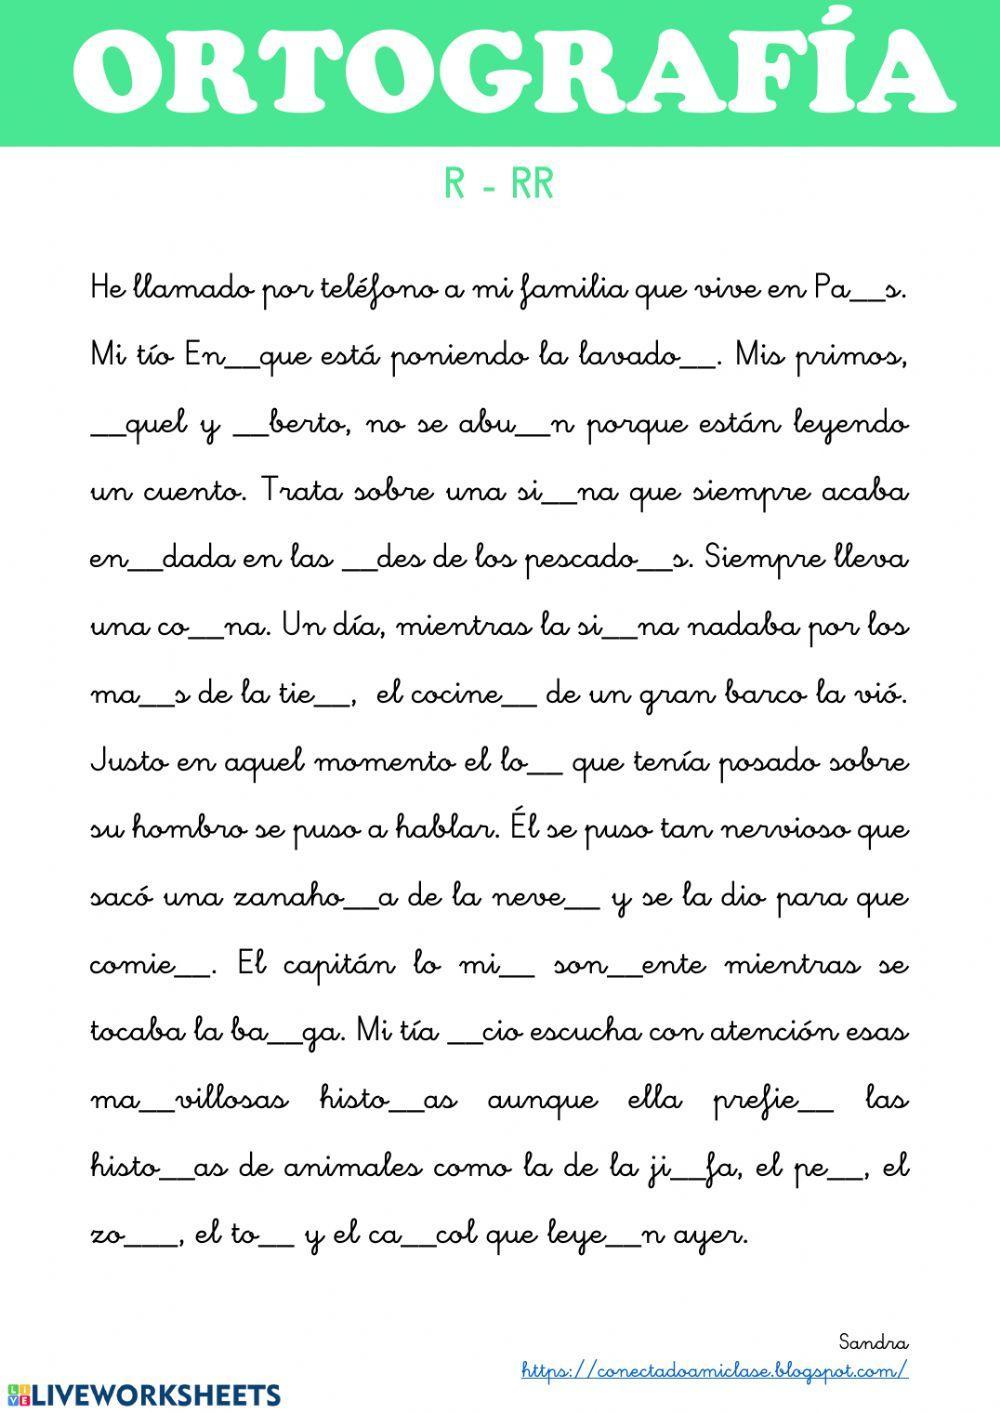 ORTOGRAFÍA
R - RR
He llamado por teléfono a mi familia que vive en Pa__s.
Mi tío En__que está poniendo la lavado__. Mis primos,
__quel y __berto, no se abu__n porque están leyendo
un cuento. Trata sobre una si__na que siempre acaba
en__dada en las __des de los pescado__s. Siempre lleva
una co__na. Un día, mientras la si__na nadaba por los
ma__s de la tie__, el cocine__ de un gran barco la vió.
Justo en aquel momento el lo__ que tenía posado sobre
su hombro se puso a hablar. Él se puso tan nervioso que
sacó una zanaho__a de la neve__ y se la dio para que
comie__. El capitán lo mi__ son__ente mientras se
tocaba la ba__ga. Mi tía __cio escucha con atención esas
ma__villosas histo__as aunque ella prefie__ las
histo__as de animales como la de la ji__fa, el pe__, el
zo___, el to__ y el ca__col que leye__n ayer.
Sandra
https://conectadoamiclase.blogspot.com/
LIVE LIVEWORKSHEETS